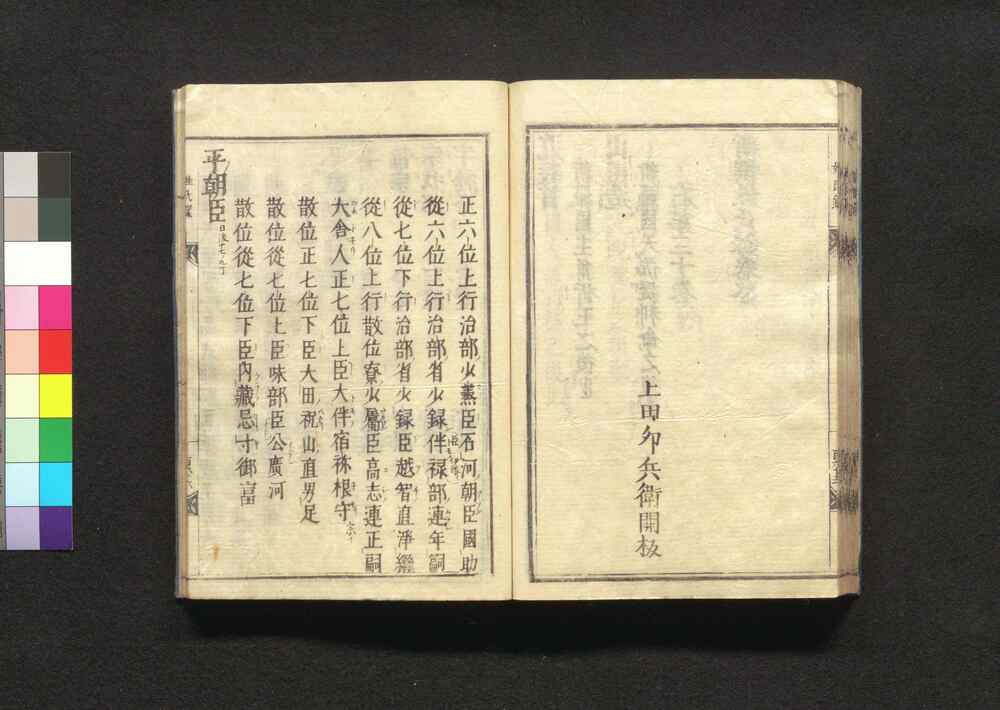 上田夘兵衛開板
正六位上行治部少薰臣石河朝臣國助
從六位上行治部省少録伴禄部連年嗣
從七位下行治部省少録臣越智直淨繼
從八位上行散位寮少属臣高志連正嗣
大舎人正七位上臣大伴宿祢根守
散位正七位下臣大田祝山直男足
散位從七位上臣味部臣公廣河
散位從七位下臣内藏忌寸御富
平朝臣